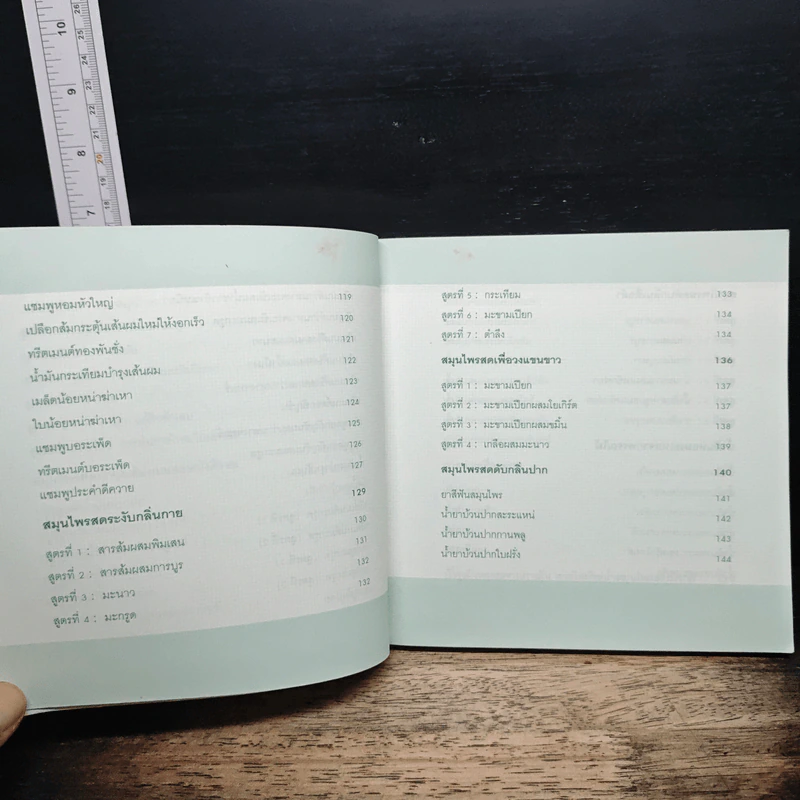 แชมพูหอมหัวใหญ่ 119
เปลือกส้มกระตุ้นเส้นผมใหม่ให้งอกเร็ว 120
ทรีตเมนต์ทองพันชั่ง 121
น้ำมันกระเทียมบำรุงเส้นผม 122
เมล็ดน้อยหน่าฆ่าเหา 123
ใบน้อยหน่าฆ่าเหา 124
แชมพูบอระเพ็ด 125
ทรีตเมนต์บอระเพ็ด 126
แชมพูประคำดีควาย 127
สมุนไพรสดระงับกลิ่นกาย 129
สูตรที่ 1 : สารส้มผสมพิมเสน 130
สูตรที่ 2 : สารส้มผสมการบูร 131
สูตรที่ 3 : มะนาว 132
สูตรที่ 4 : มะกรูด 132
สูตรที่ 5 : กระเทียม 133
สูตรที่ 6 : มะขามเปียก 134
สูตรที่ 7 : ตำลึง 134
สมุนไพรสดเพื่อวงแขนขาว 136
สูตรที่ 1 : มะขามเปียก 137
สูตรที่ 2 : มะขามเปียกผสมโยเกิร์ต 137
สูตรที่ 3 : มะขามเปียกผสมขมิ้น 138
สูตรที่ 4 : เกลือผสมมะนาว 139
สมุนไพรสดดับกลิ่นปาก 140
ยาสีฟันสมุนไพร 141
น้ำยาบ้วนปากสะระแหน่ 142
น้ำยาบ้วนปากกานพลู 143
น้ำยาบ้วนปากใบฝรั่ง 144